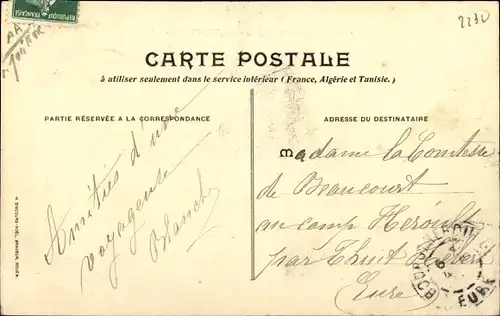 2270
CARTE POSTALE
à utiliser seulement dans le service intérieur (France, Algérie et Tunisie.)
PARTIE RÉSERVÉE A LA CORRESPONDANCE
ADRESSE DU DESTINATAIRE
Amitiés d'une
voyageuse
Blanche
Madame la Comtesse
de Beaucourt
au camp Héroult
par Thuit Hébert
Eure
EURE